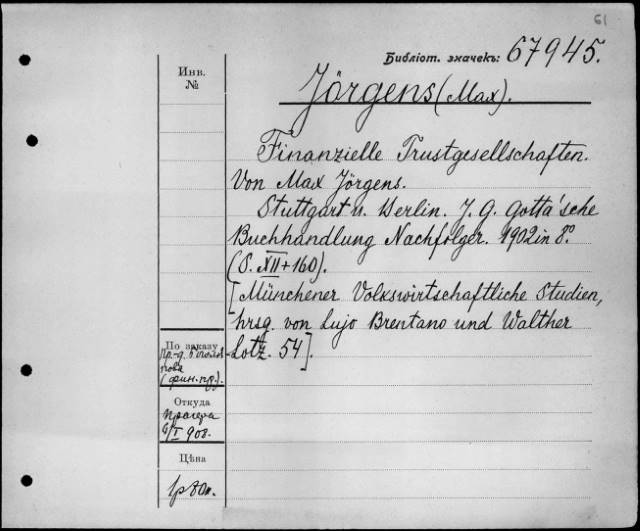 61
Библіот. значекъ: 67945.
Инв.
№
Jörgens (Max).
Finanzielle Trustgesellschaften.
Von Max Jörgens.
Stuttgart u. Berlin. J. G. Cotta'sche
Buchhandlung Nachfolger. 1902 in 8°.
(S. XII + 160).
[Münchener Volkswirtschaftliche Studien,
hrsg. von Lujo Brentano und Walther
Lotz. 54].
По заказу
(фин. пр.).
Откуда
6/I 908.
Цѣна
1 р 80 к.